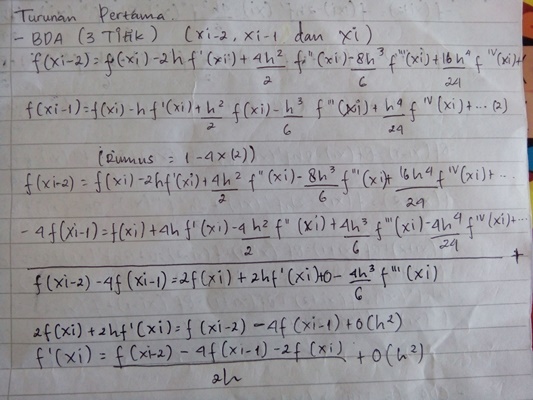 Turunan Pertama
- BDA (3 Titik) (xi-2, xi-1 dan xi)
f(xi-2) = f(xi) - 2h f'(xi) + 4h²/2 f''(xi) - 8h³/6 f'''(xi) + 16h⁴/24 f^IV(xi) +
f(xi-1) = f(xi) - h f'(xi) + h²/2 f(xi) - h³/6 f'''(xi) + h⁴/24 f^IV(xi) + ... (2)
(Rumus = 1 - 4 x (2))
f(xi-2) = f(xi) - 2h f'(xi) + 4h²/2 f''(xi) - 8h³/6 f'''(xi) + 16h⁴/24 f^IV(xi) + ...
- 4f(xi-1) = f(xi) + 4h f'(xi) - 4h²/2 f''(xi) + 4h³/6 f'''(xi) - 4h⁴/24 f^IV(xi) + ...
+
f(xi-2) - 4f(xi-1) = 2f(xi) + 2h f'(xi) + 0 - 4h³/6 f'''(xi)
2f(xi) + 2h f'(xi) = f(xi-2) - 4f(xi-1) + 0(h²)
f'(xi) = f(xi-2) - 4f(xi-1) - 2f(xi) / 2h + 0(h²)